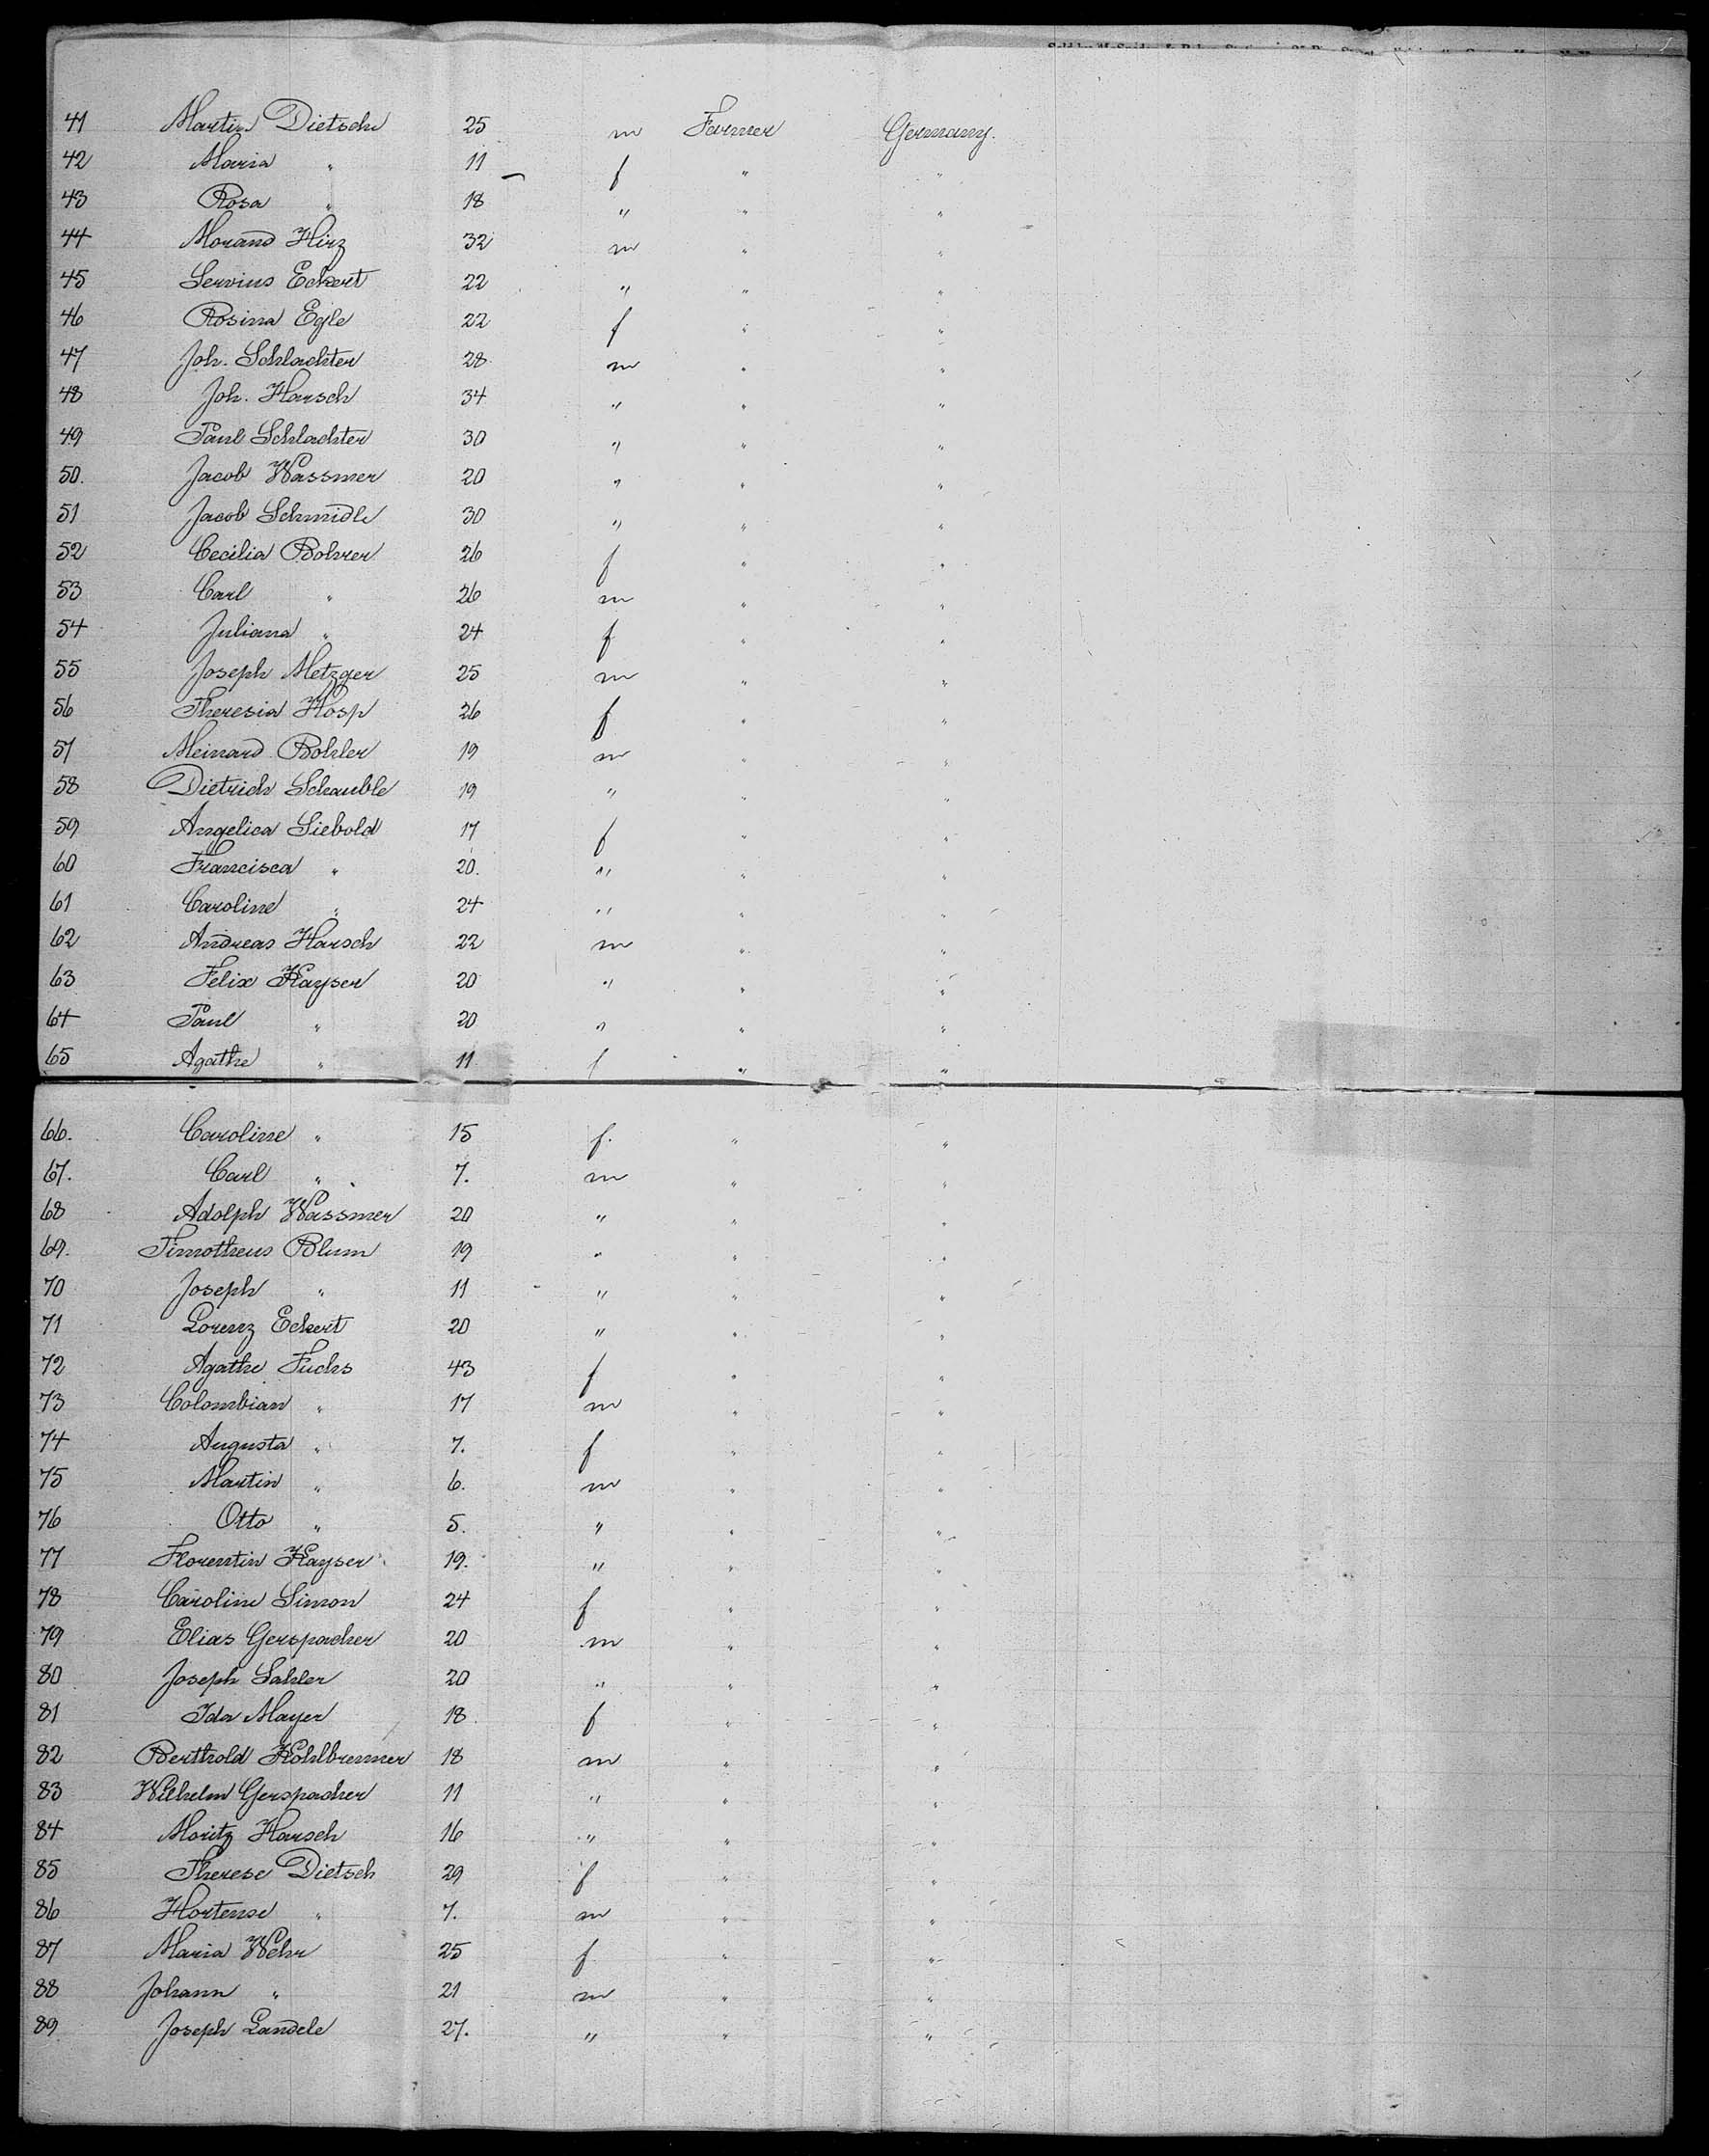 41 Martin Dietsche 25 m Farmer Germany.
42 Maria " 11 f " "
43 Rosa " 18 " " "
44 Morand Hirz 32 m " "
45 Servius Eckert 22 " " "
46 Rosina Egle 22 f " "
47 Joh. Schlachter 28 m " "
48 Joh. Harsch 34 " " "
49 Paul Schlachter 30 " " "
50. Jacob Wassmer 20 " " "
51 Jacob Schmidle 30 " " "
52 Cecilia Bohrer 26 f " "
53 Carl " 26 m " "
54 Juliana " 24 f " "
55 Joseph Metzger 25 m " "
56 Theresia Hosp 26 f " "
57 Meinard Bohler 19 m " "
58 Dietrich Schauble 19 " " "
59 Angelica Siebold 17 f " "
60 Francisca " 20. " " "
61 Caroline " 24 " " "
62 Andreas Harsch 22 m " "
63 Felix Kayser 20 " " "
64 Paul " 20 " " "
65 Agathe " 11 f " "
66. Caroline " 15 f. " "
67. Carl " 7. m " "
68 Adolph Wassmer 20 " " "
69. Timotheus Blum 19 " " "
70 Joseph " 11 " " "
71 Lorenz Eckert 20 " " "
72 Agathe Fuchs 43 f " "
73 Colombian " 17 m " "
74 Augusta " 7. f " "
75 Martin " 6. m " "
76 Otto " 5. " " "
77 Florentin Kayser 19. " " "
78 Caroline Simon 24 f " "
79 Elias Gerspacher 20 m " "
80 Joseph Sahler 20 " " "
81 Ida Mayer 18 f " "
82 Berthold Kohlbrenner 18 m " "
83 Wilhelm Gerspacher 11 " " "
84 Moritz Harsch 16 " " "
85 Therese Dietsch 29 f " "
86 Hortense " 7. m " "
87 Maria Wehr 25 f " "
88 Johann " 21 m " "
89 Joseph Landele 27. " " "